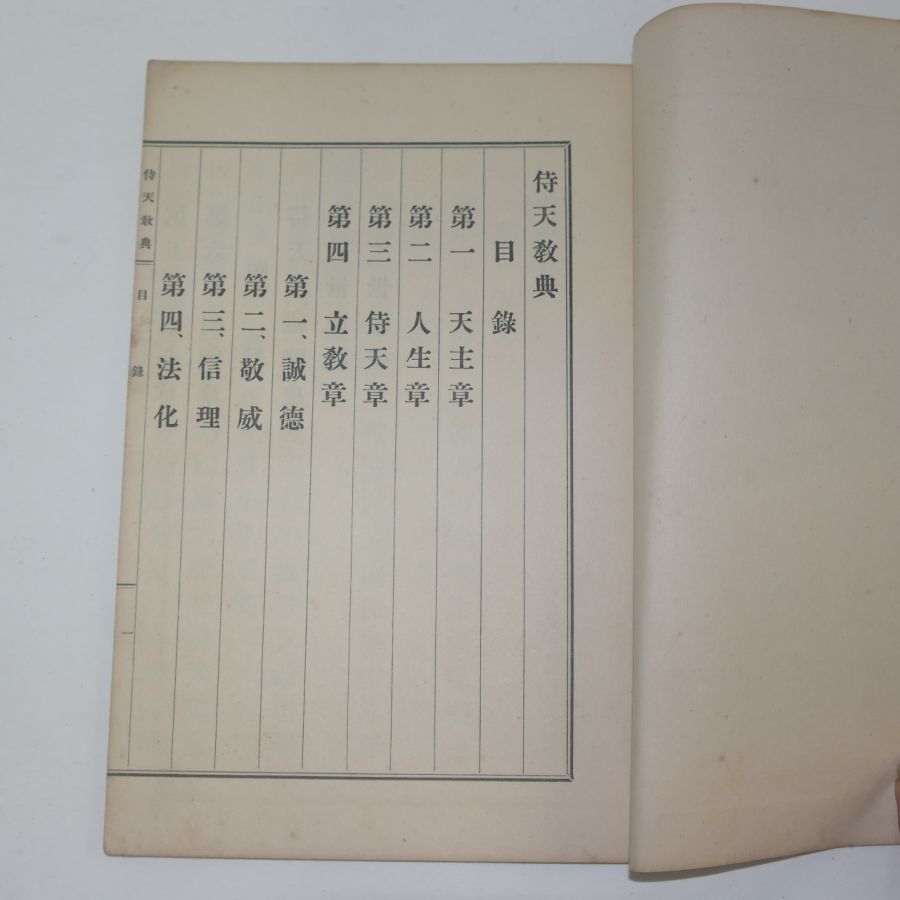 侍天敎典
目錄
第一 天主章
第二 人生章
第三 侍天章
第四 立敎章
第一、誠德
第二、敬威
第三、信理
第四、法化
侍天敎典 目錄 一